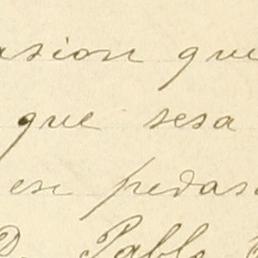 asion que
que sesa
en pedas
D. Pablo